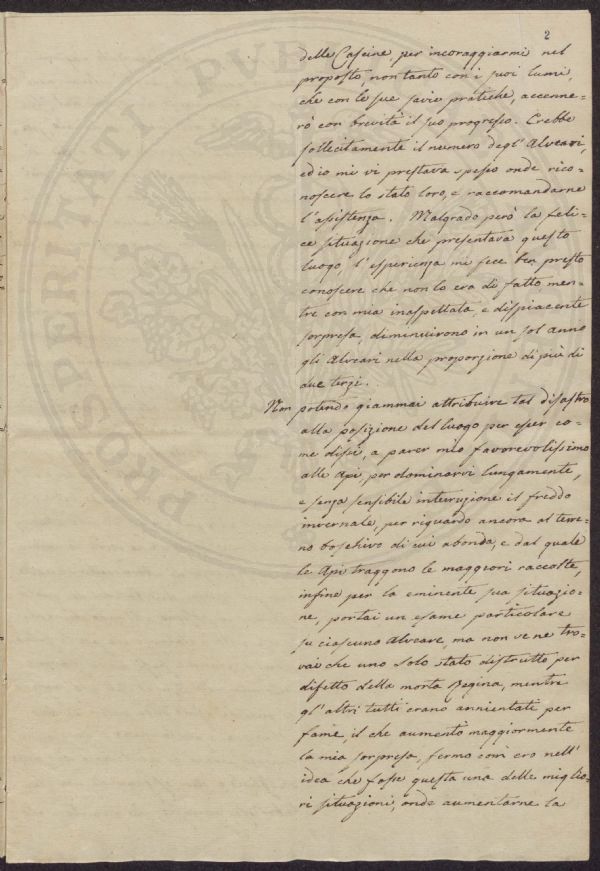 2
delle Cascine, per incoraggiarmi nel
proposto, non tanto con i suoi lumi,
che con le sue savie pratiche, accenne-
rò con brevità il suo progresso. Crebbe
sollecitamente il numero degl' Alveari,
ed io mi vi prestava spesso onde rico-
noscere lo stato loro, e raccomandarne
l'assistenza. Malgrado però la feli-
ce situazione che presentava questo
luogo, l'esperienza mi fece ben presto
conoscere che non lo era di fatto, men-
tre con mia inaspettata, e dispiacente
sorpresa, diminuirono in un sol anno
gli Alveari nella proporzione di più di
due terzi.
Non potendo giammai attribuire tal disastro
alla posizione del luogo per esser co-
me dissi, a parer mio favorevolissimo
alle Api, per dominarvi lungamente,
e senza sensibile interruzione il freddo
invernale, per riguardo ancora al terre-
no boschivo di cui abonda, e dal quale
le Api traggono le maggiori raccolte,
infine per la eminente sua situazio-
ne, portai un esame particolare
su ciascuno Alveare, ma non ve ne tro-
vai che uno solo stato distrutto per
difetto della morta Regina, mentre
gl'altri tutti erano annientati per
fame, il che aumentò maggiormente
la mia sorpresa, fermo com'ero nell'
idea che fosse questa una delle miglio-
ri situazioni, onde aumentarne la
PROSPERITAT PVB